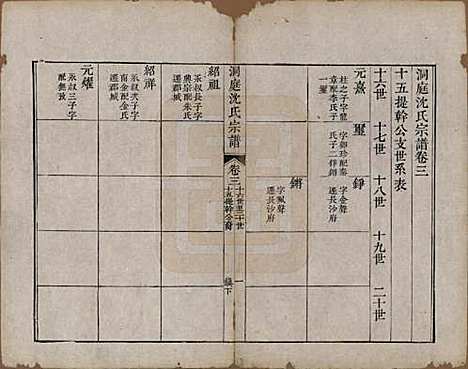 洞庭沈氏宗譜卷三
十五提幹公支世系表
十六世 十七世 十八世 十九世 二十世
元熹 璽 錚
柱之子字龍
章配李氏子
一璽
字御珍配秦
氏子二錚鏘
字金聲
遷長沙府
鏘
字珮聲
遷長沙府
洞庭沈氏宗譜
卷三
十六世至二十世
十五提幹公裔
一
紹祖
永叔長子字
興宗配朱氏
遷郡城
紹祥
永叔次子字
南金配金氏
遷郡城
元燿
永叔三子字